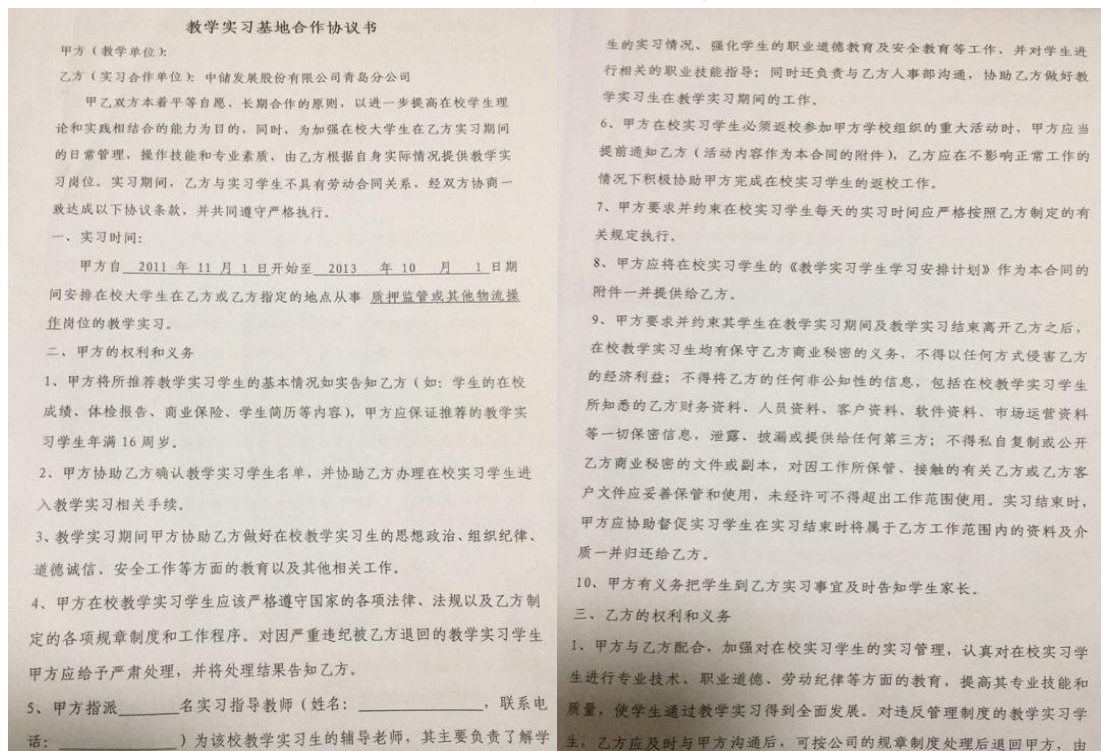 教学实习基地合作协议书
甲方（教学单位）：
乙方（实习合作单位）：中储发展股份有限公司青岛分公司
甲乙双方本着平等自愿、长期合作的原则，以进一步提高在校学生理
论和实践相结合的能力为目的，同时、为加强在校大学生在乙方实习期间
的日常管理，操作技能和专业素质，由乙方根据自身实际情况提供教学实
习岗位。实习期间，乙方与实习学生不具有劳动合同关系，经双方协商一
致达成以下协议条款，并共同遵守严格执行。
一、实习时间：
甲方自 2011 年 11 月 1 日开始至 2013 年 10 月 1 日期
间安排在校大学生在乙方或乙方指定的地点从事 质押监管或其他物流操
作岗位的教学实习。
二、甲方的权利和义务
1、甲方将所推荐教学实习学生的基本情况如实告知乙方（如：学生的在校
成绩、体检报告、商业保险、学生简历等内容），甲方应保证推荐的教学实
习学生年满 16 周岁。
2、甲方协助乙方确认教学实习学生名单，并协助乙方办理在校实习学生进
入教学实习相关手续。
3、教学实习期间甲方协助乙方做好在校教学实习生的思想政治、组织纪律、
道德诚信、安全工作等方面的教育以及其他相关工作。
4、甲方在校教学实习学生应该严格遵守国家的各项法律、法规以及乙方制
定的各项规章制度和工作程序。对因严重违纪被乙方退回的教学实习学生
甲方应给予严肃处理，并将处理结果告知乙方。
5、甲方指派______名实习指导教师（姓名：____________，联系电
话：____________）为该校教学实习生的辅导老师，其主要负责了解学
生的实习情况、强化学生的职业道德教育及安全教育等工作、并对学生进
行相关的职业技能指导；同时还负责与乙方人事部沟通，协助乙方做好教
学实习生在教学实习期间的工作。
6、甲方在校实习学生必须返校参加甲方学校组织的重大活动时，甲方应当
提前通知乙方（活动内容作为本合同的附件），乙方应在不影响正常工作的
情况下积极协助甲方完成在校实习学生的返校工作。
7、甲方要求并约束在校实习学生每天的实习时间应严格按照乙方制定的有
关规定执行。
8、甲方应将在校实习学生的《教学实习学生学习安排计划》作为本合同的
附件一并提供给乙方。
9、甲方要求并约束其学生在教学实习期间及教学实习结束离开乙方之后，
在校教学实习生均有保守乙方商业秘密的义务，不得以任何方式侵害乙方
的经济利益；不得将乙方的任何非公知性的信息，包括在校教学实习学生
所知悉的乙方财务资料、人员资料、客户资料、软件资料、市场运营资料
等一切保密信息，泄露、披漏或提供给任何第三方；不得私自复制或公开
乙方商业秘密的文件或副本，对因工作所保管、接触的有关乙方或乙方客
户文件应妥善保管和使用，未经许可不得超出工作范围使用。实习结束时，
甲方应协助督促实习学生在实习结束时将属于乙方工作范围内的资料及介
质一并归还给乙方。
10、甲方有义务把学生到乙方实习事宜及时告知学生家长。
三、乙方的权利和义务
1、甲方与乙方配合，加强对在校实习学生的实习管理，认真对在校实习学
生进行专业技术、职业道德、劳动纪律等方面的教育，提高其专业技能和
质量，使学生通过教学实习得到全面发展。对违反管理制度的教学实习学
生，乙方应及时与甲方沟通后，可按公司的规章制度处理后退回甲方，由